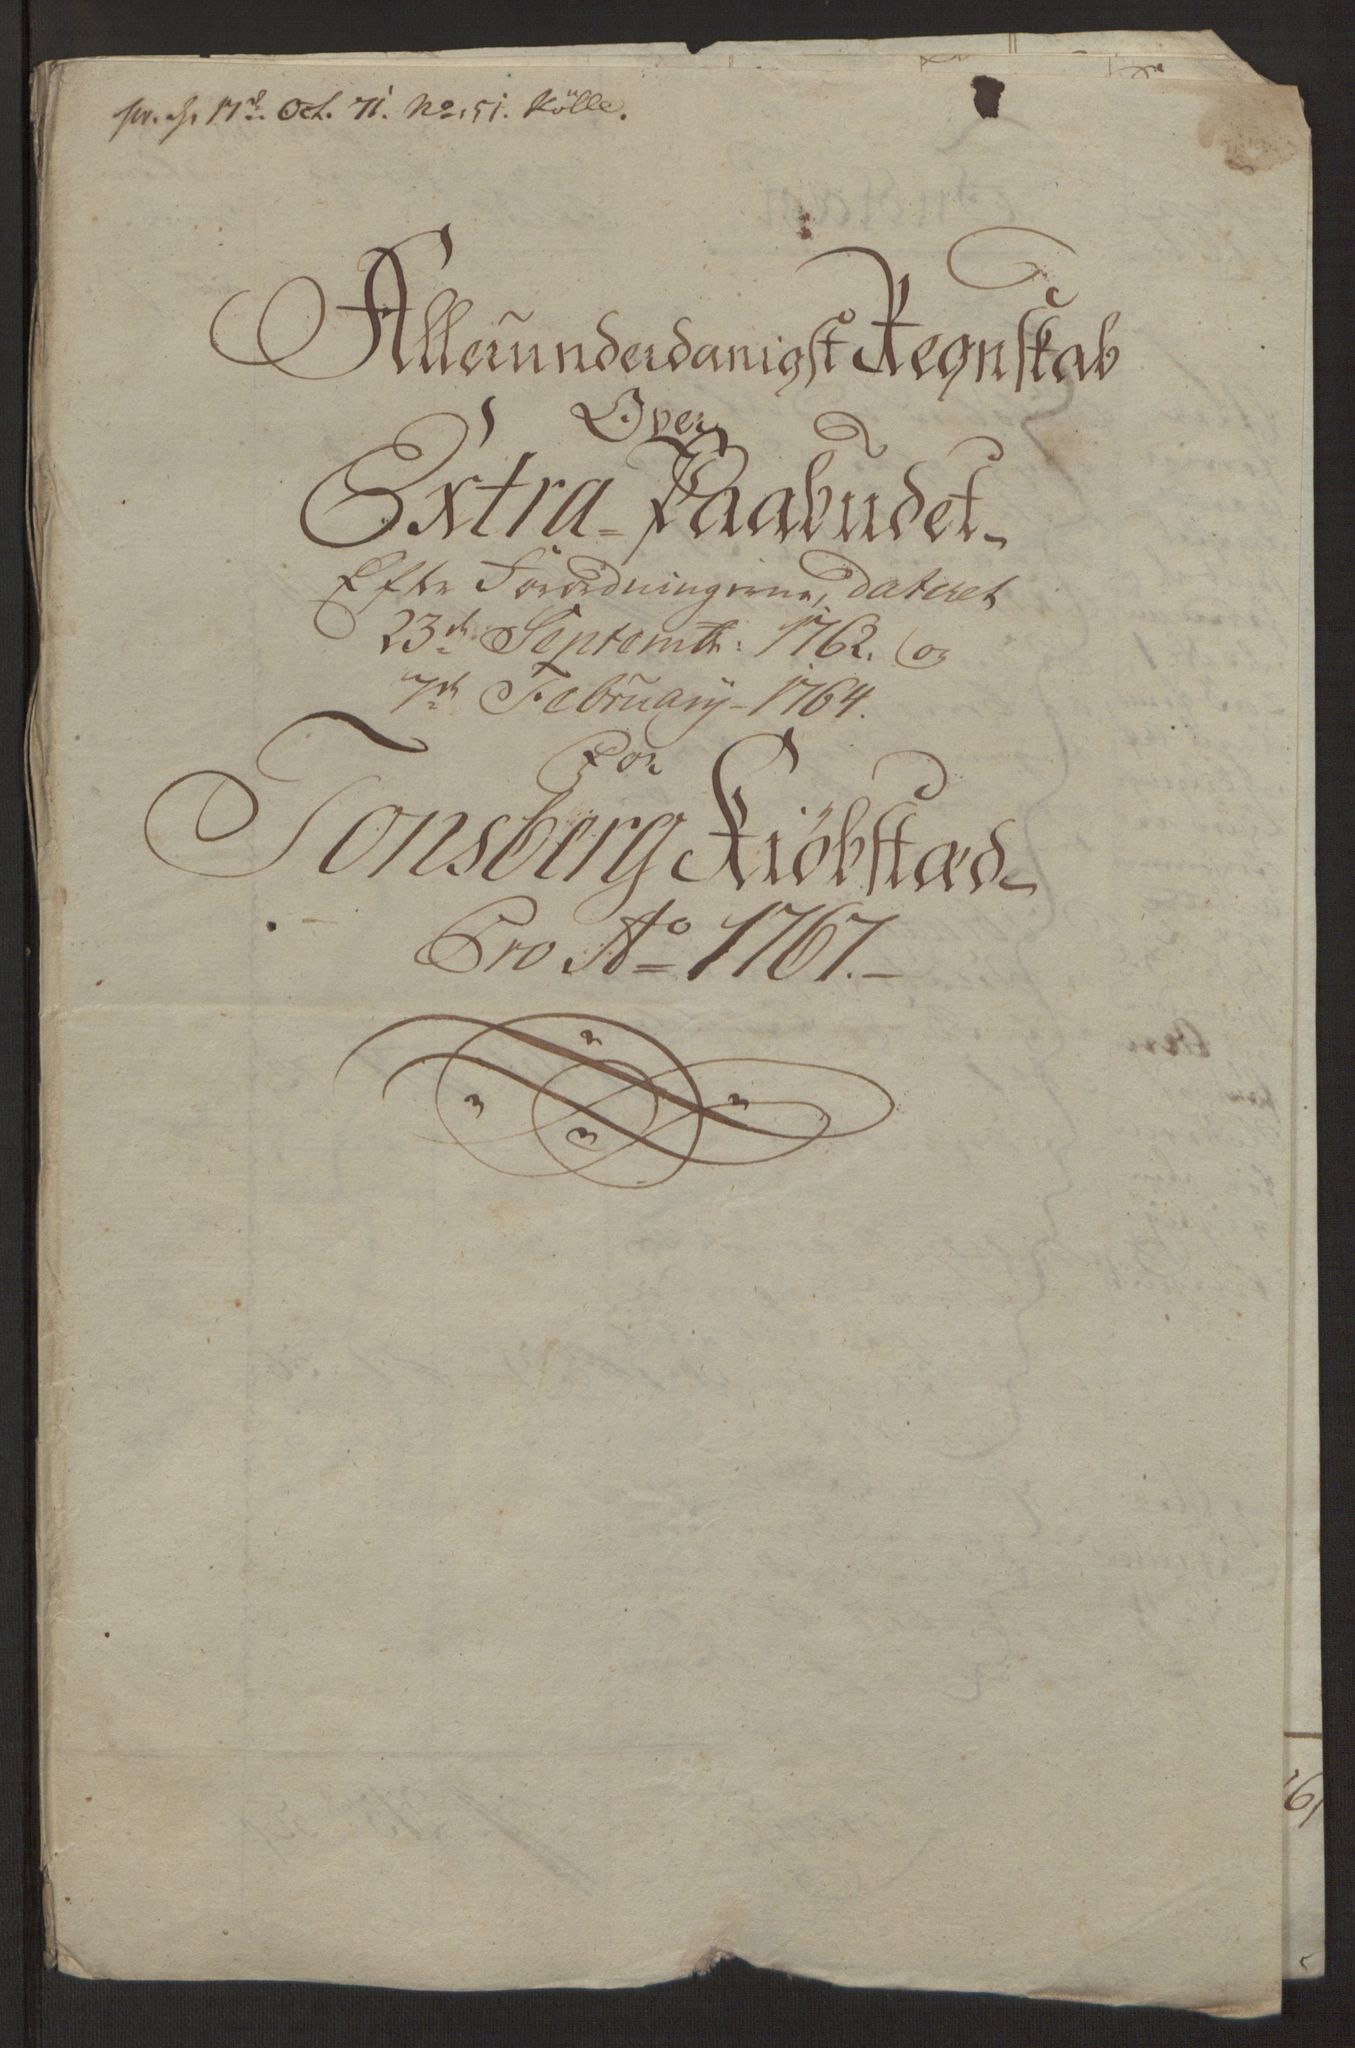 17de Oct. 71. No. 51. Kölle.
Allerunderdanigst Regnskab
Over
Extra-Paabudet
Efter Forordningerne, dateret
23de Septembr: 1762. og
7de February 1764.
For
Tonsberg Kiöbstæd
Pro Ao 1767.